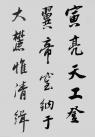 寅亮天工登
翼帝室纳于
大麓惟清缉